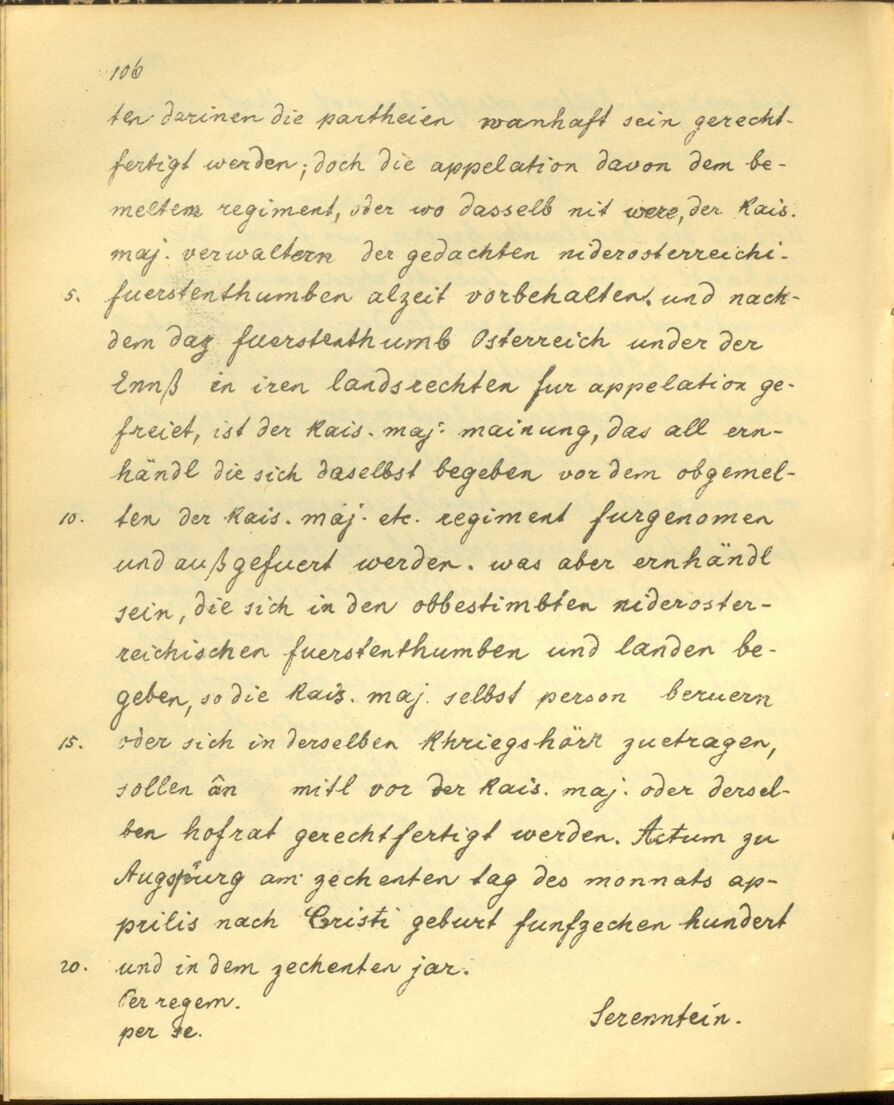 106
ten darinen die partheien wanhaft sein gerecht-
fertigt werden; doch die appelation davon dem be-
meltem regiment, oder wo dasselb nit were, der Kais.
maj. verwaltern der gedachten niderosterreichi-
5. fuerstenthumben alzeit vorbehalten. und nach-
dem das fuerstenthumb Osterreich under der
Ennß in iren landsrechten fur appelation ge-
freiet, ist der Kais. maj. mainung, das all ern-
händl die sich daselbst begeben vor dem obgemel-
10. ten der Kais. maj. etc. regiment furgenomen
und außgefuert werden. was aber ernhändl
sein, die sich in den obbestimbten nideroster-
reichischen fuerstenthumben und landen be-
geben, so die Kais. maj. selbst person beruern
15. oder sich in derselben Khriegshörr zuetragen,
sollen ân mitl vor der Kais. maj. oder dersel-
ben hofrat gerechtfertigt werden. Actum zu
Augspurg am zechenten tag des monnats ap-
prilis nach Cristi geburt funfzechen hundert
20. und in dem zechenten jar.
Per regem.
per se. Serenntein.